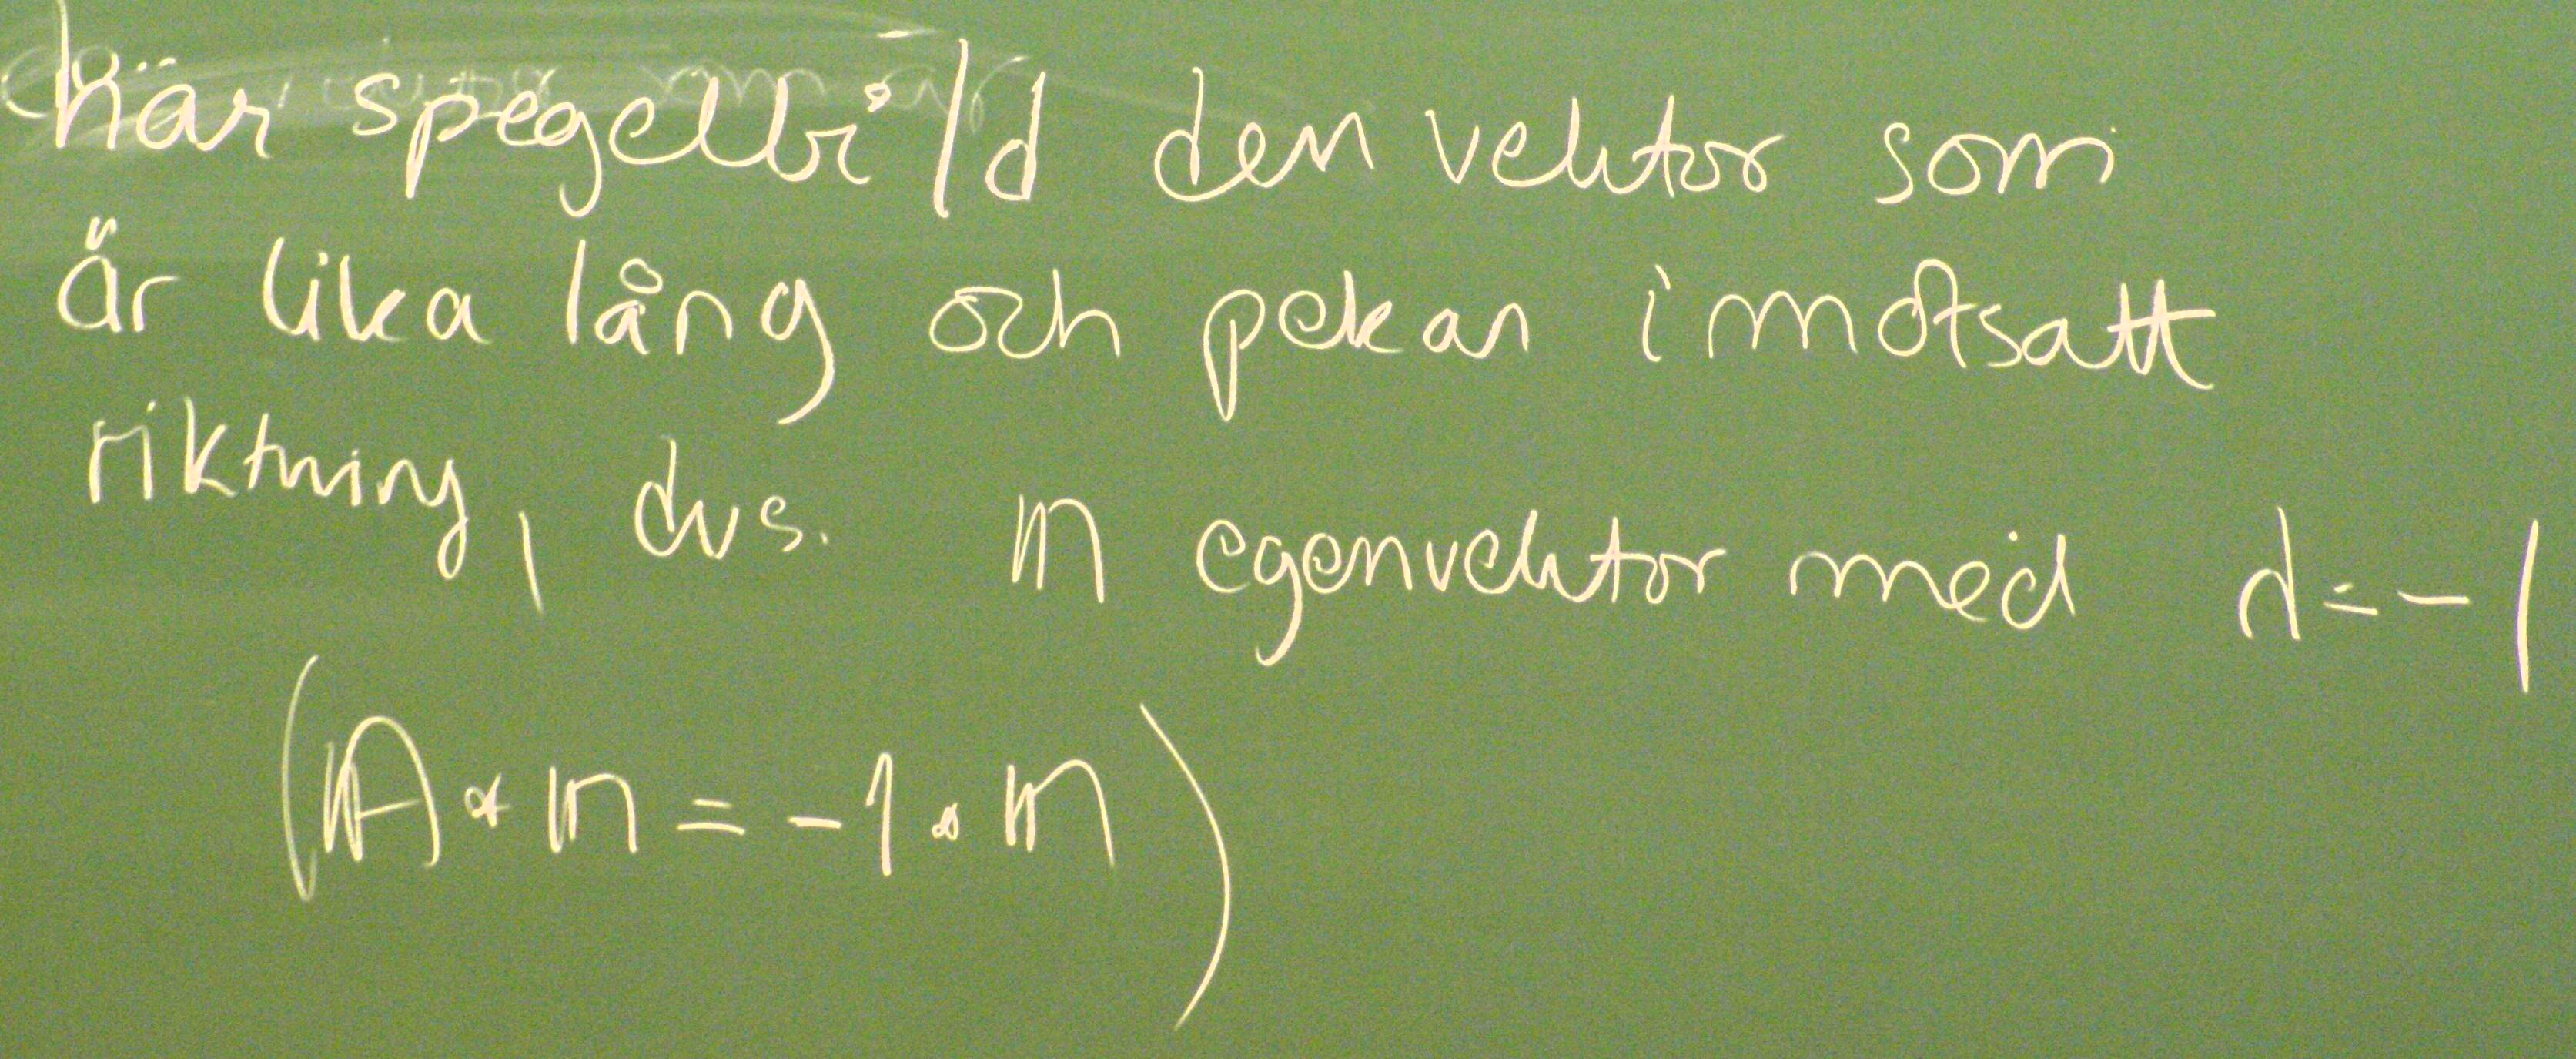 här spegelbild den vektor som
är lika lång och pekar i motsatt
riktning, dvs. n egenvektor med d=-1
(A*n=-1*n)